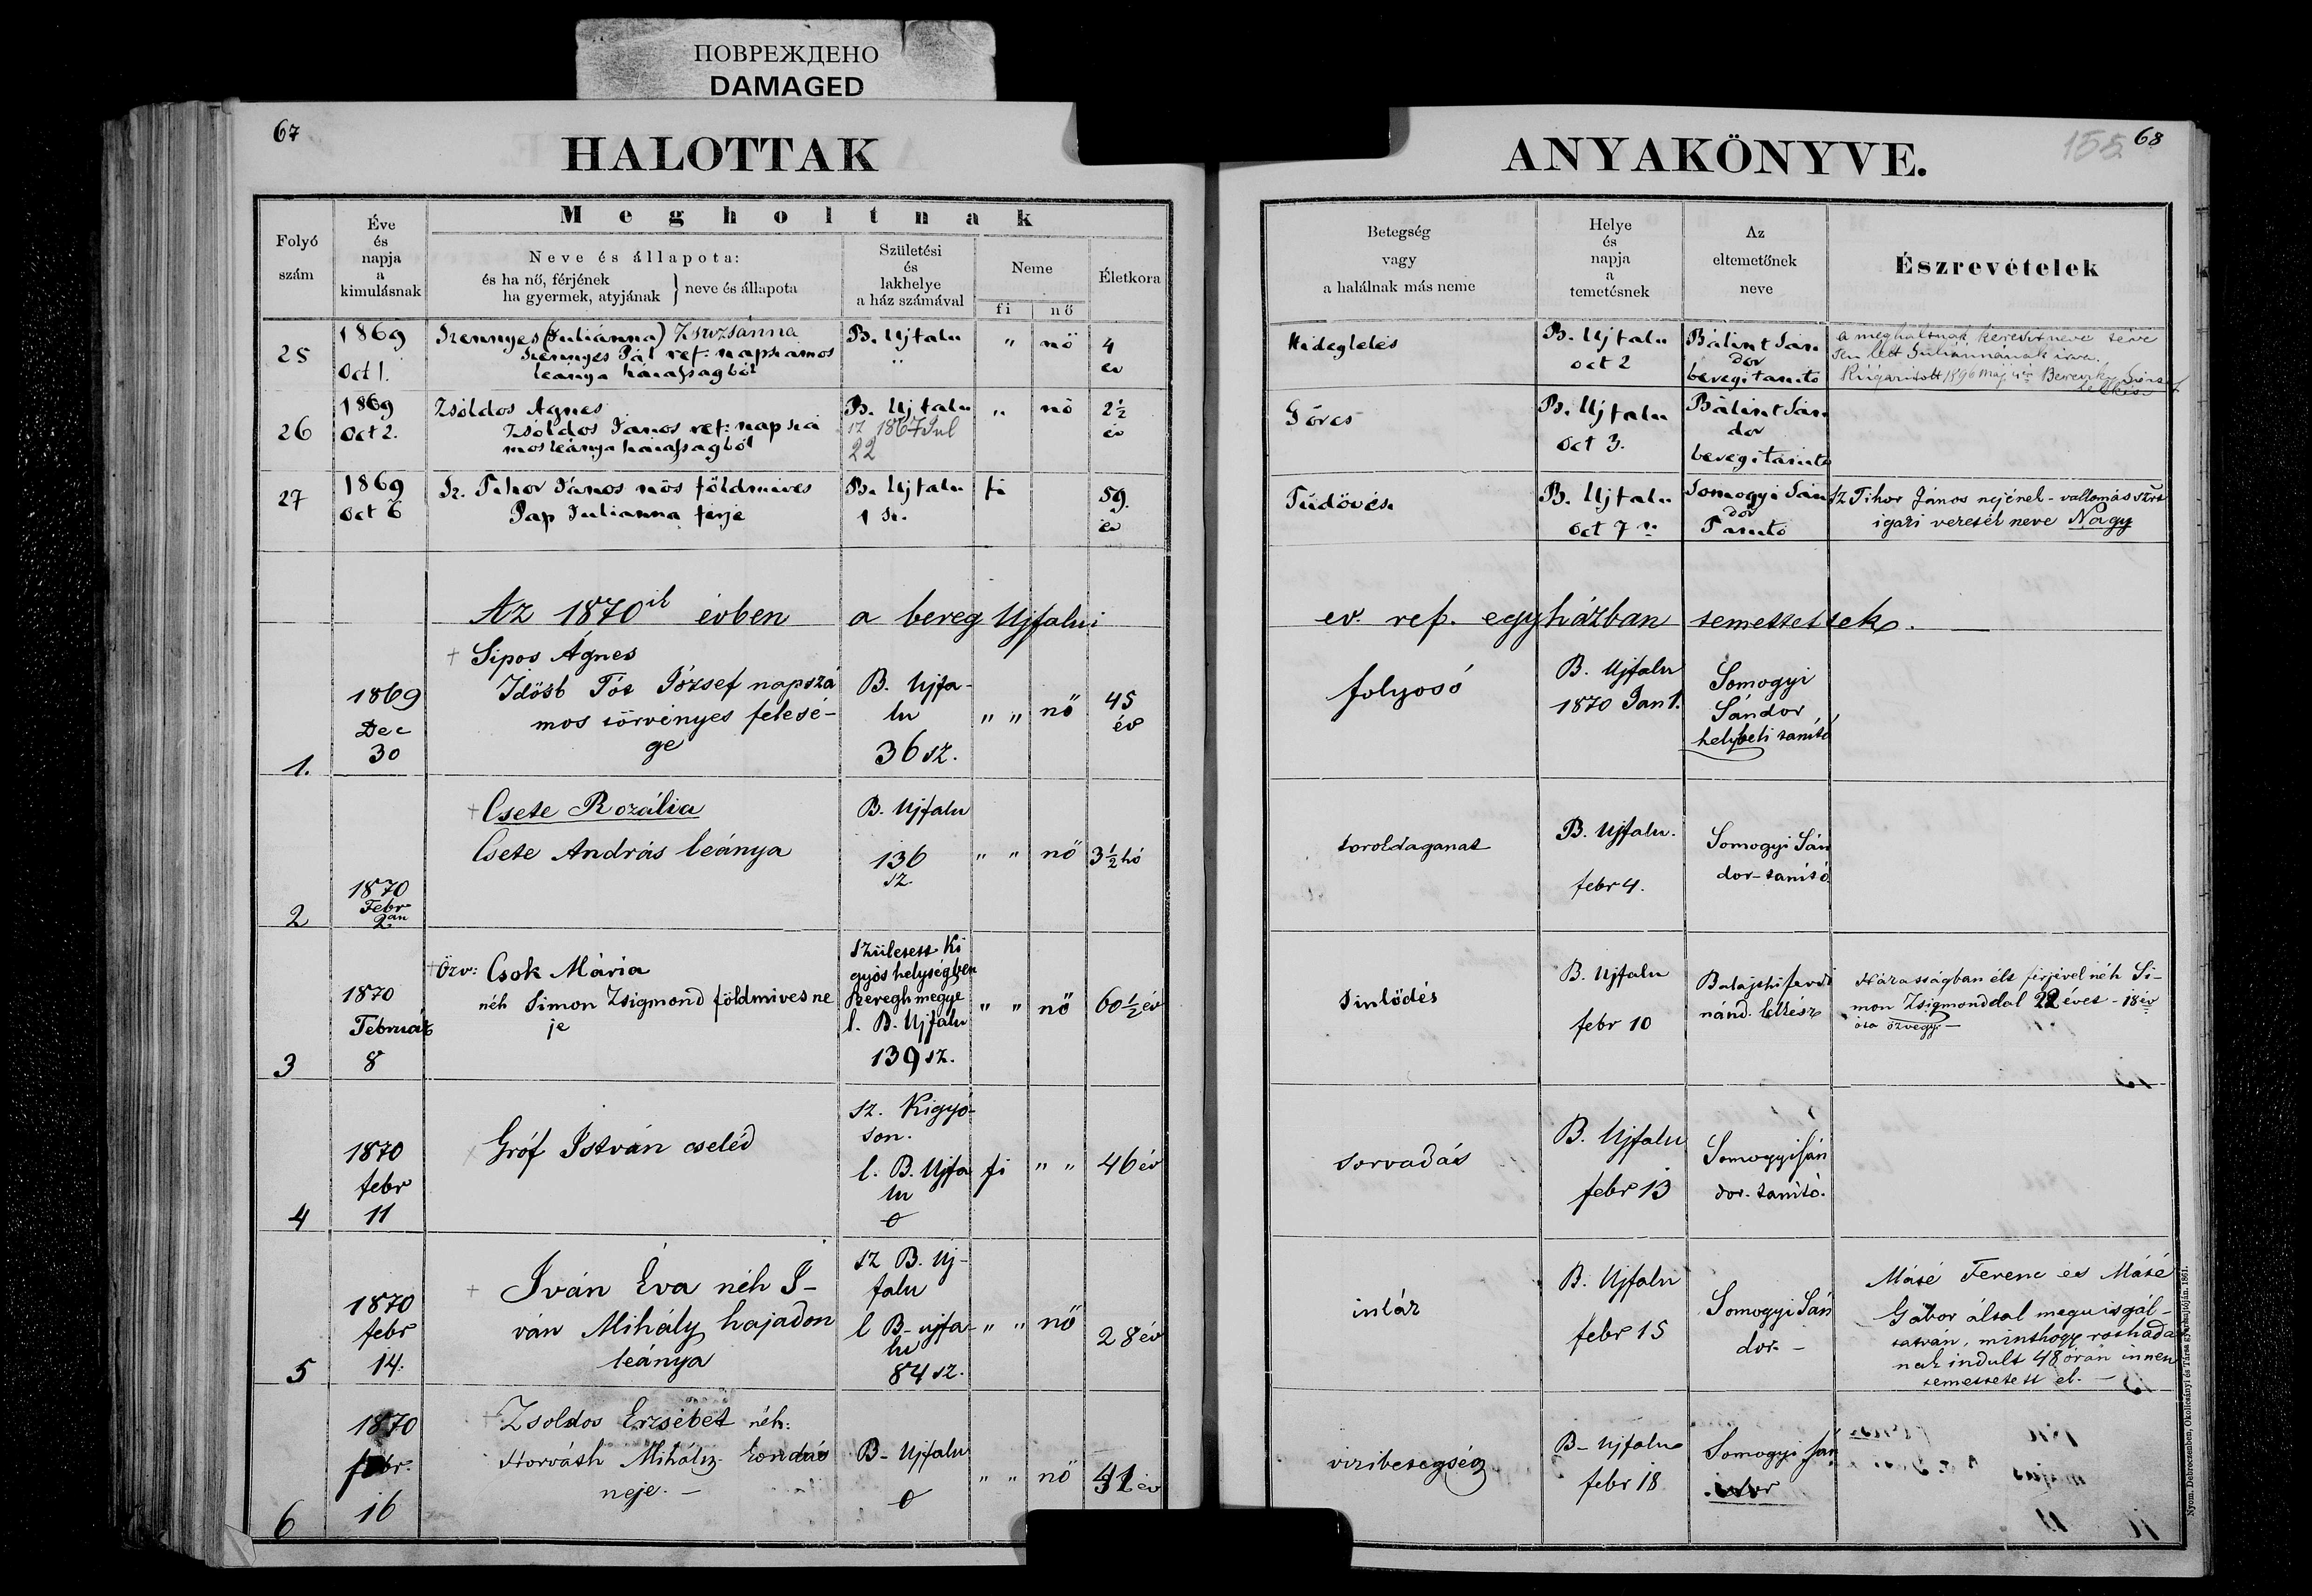 ПОВРЕЖДЕНО
DAMAGED
67
HALOTTAK
Folyó
szám
Éve
és
napja
a
kimulásnak
Megholtnak
Neve és állapota:
és ha nő, férjének
ha gyermek, atyjának } neve és állapota
Születési
és
lakhelye
a ház számával
Neme
fi nő
Életkora
25
1869
Oct 1.
Szennyes (Juliánna) Zsuzsánna
Szennyes Pál ref: napszámos
leánya házasságból
B. Ujfalu
"
" nő
4
év
26
1869
Oct 2.
Zsóldos Ágnes
Zsóldos János ref: napszá
mos leánya házasságból
B. Ujfalu
sz 1867 Jul
22
" nő
2½
év
27
1869
Oct 6
Sz. Tihor János nős földmives
Pap Julianna férje
B. Ujfalu
1 sz.
fi
59.
év
Az 1870ik évben a bereg Ujfalui
1.
1869
Dec
30
† Sipos Ágnes
Idősb Tót József napszá
mos törvényes felesé-
ge
B. Ujfa-
lu
36 sz.
" " nő
45
év
2
1870
Febr
2án
† Csete Rozália
Csete András leánya
B. Ujfalu
136
sz.
" " nő
3½ hó
3
1870
Február
8
† Özv: Csok Mária
néh Simon Zsigmond földmives ne
je
Született Ki
gyós helységben
Beregh megye
l. B. Ujfalu
139 sz.
" " nő
60½ év
4
1870
febr
11
Gróf István cseléd
sz. Kigyó-
son.
l. B. Ujfa
lu
0
fi " "
46 év
5
1870
febr
14.
† Iván Éva néh I-
ván Mihály hajadon
leánya
sz B. Uj-
falu
l B-ujfa-
lu
84 sz.
" " nő
28 év
6
1870
febr.
16
Zsoldos Erzsébet néh:
Horváth Mihály
neje. -
B- Ujfalu
0
" " nő
év
ANYAKÖNYVE.
155 68
Betegség
vagy
a halálnak más neme
Helye
és
napja
a
temetésnek
Az
eltemetőnek
neve
Észrevételek
Hideglelés
B. Ujfalu
oct 2
Bálint Sán
dor
beregi tanitó
a meghaltnak keresztneve téve
sen lett Juliannának irva.
Kiigazitott 1896 máj
lelkész
Görcs
B. Ujfalu
Oct 3.
Bálint Sán
dor
beregi tanitó
Tüdővész
B. Ujfalu
Oct 7
Somogyi Sán
dor
Tanitó
Sz Tihor János nejének - vallomás szer
igazi vezeték neve Nagy
ev. ref. egyházban temettettek.
folyosó
B. Ujfalu
1870 Jan 1.
Somogyi
Sándor
helybeli tanító
toroldaganat
B. Ujfalu.
febr 4.
Somogyi Sán
dor- tanító
Sinlődés
B. Ujfalu
febr 10
Balajthi ferdi
nánd. lelkész
Házasságban élt férjével néh Si-
mon Zsigmonddal 22 évet - 18 év
óta özvegy -
sorvadás
B. Ujfalu
febr 13
Somogyi Sán
dor. tanító.
intáz
B. Ujfalu
febr 15
Somogyi Sán
dor. -
Máté Ferenc és Máté
Gábor által megvizsgál-
tatván, minthogy rothadás
nak indult 48 órán innen
temettetett el. -
vizibetegség
B- Ujfalu
febr 18
Somogyi Sán
dor
Nyom. Debreczenben, Okolicsányi és Társa gyorssajtóján. 1861.